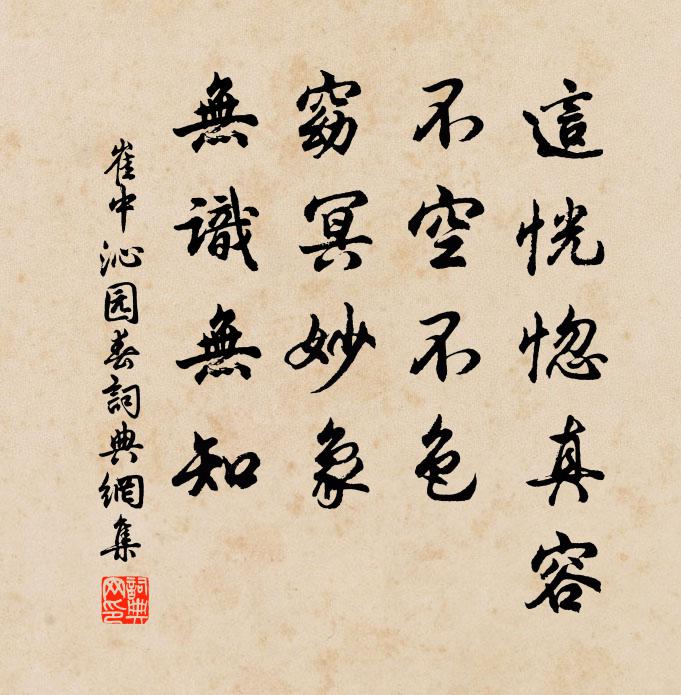 這恍惚真容
不空不色
窈冥妙象
無識無知
崔中沁园春詞典網集
詞典网印